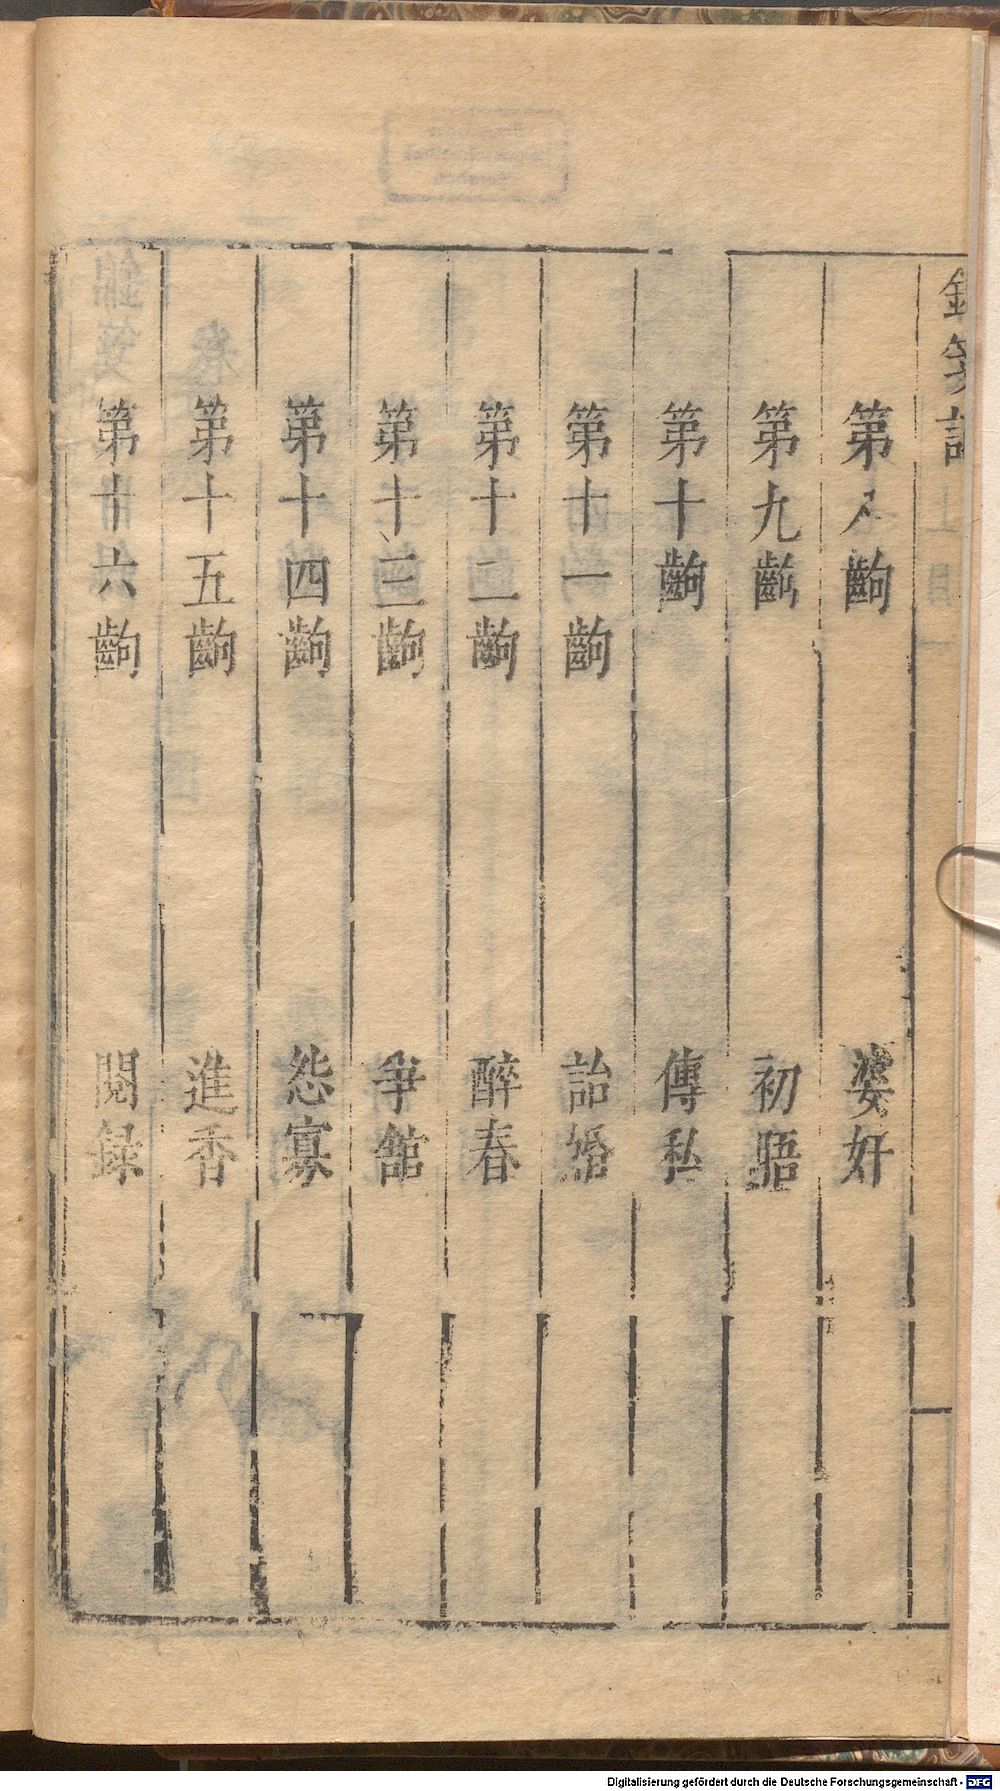 第八齣 婆奸
第九齣 初晤
第十齣 傳私
第十一齣 詒婚
第十二齣 醉春
第十三齣 爭館
第十四齣 怨寡
第十五齣 進香
第十六齣 閱録
Digitalisierung gefördert durch die Deutsche Forschungsgemeinschaft - DFG